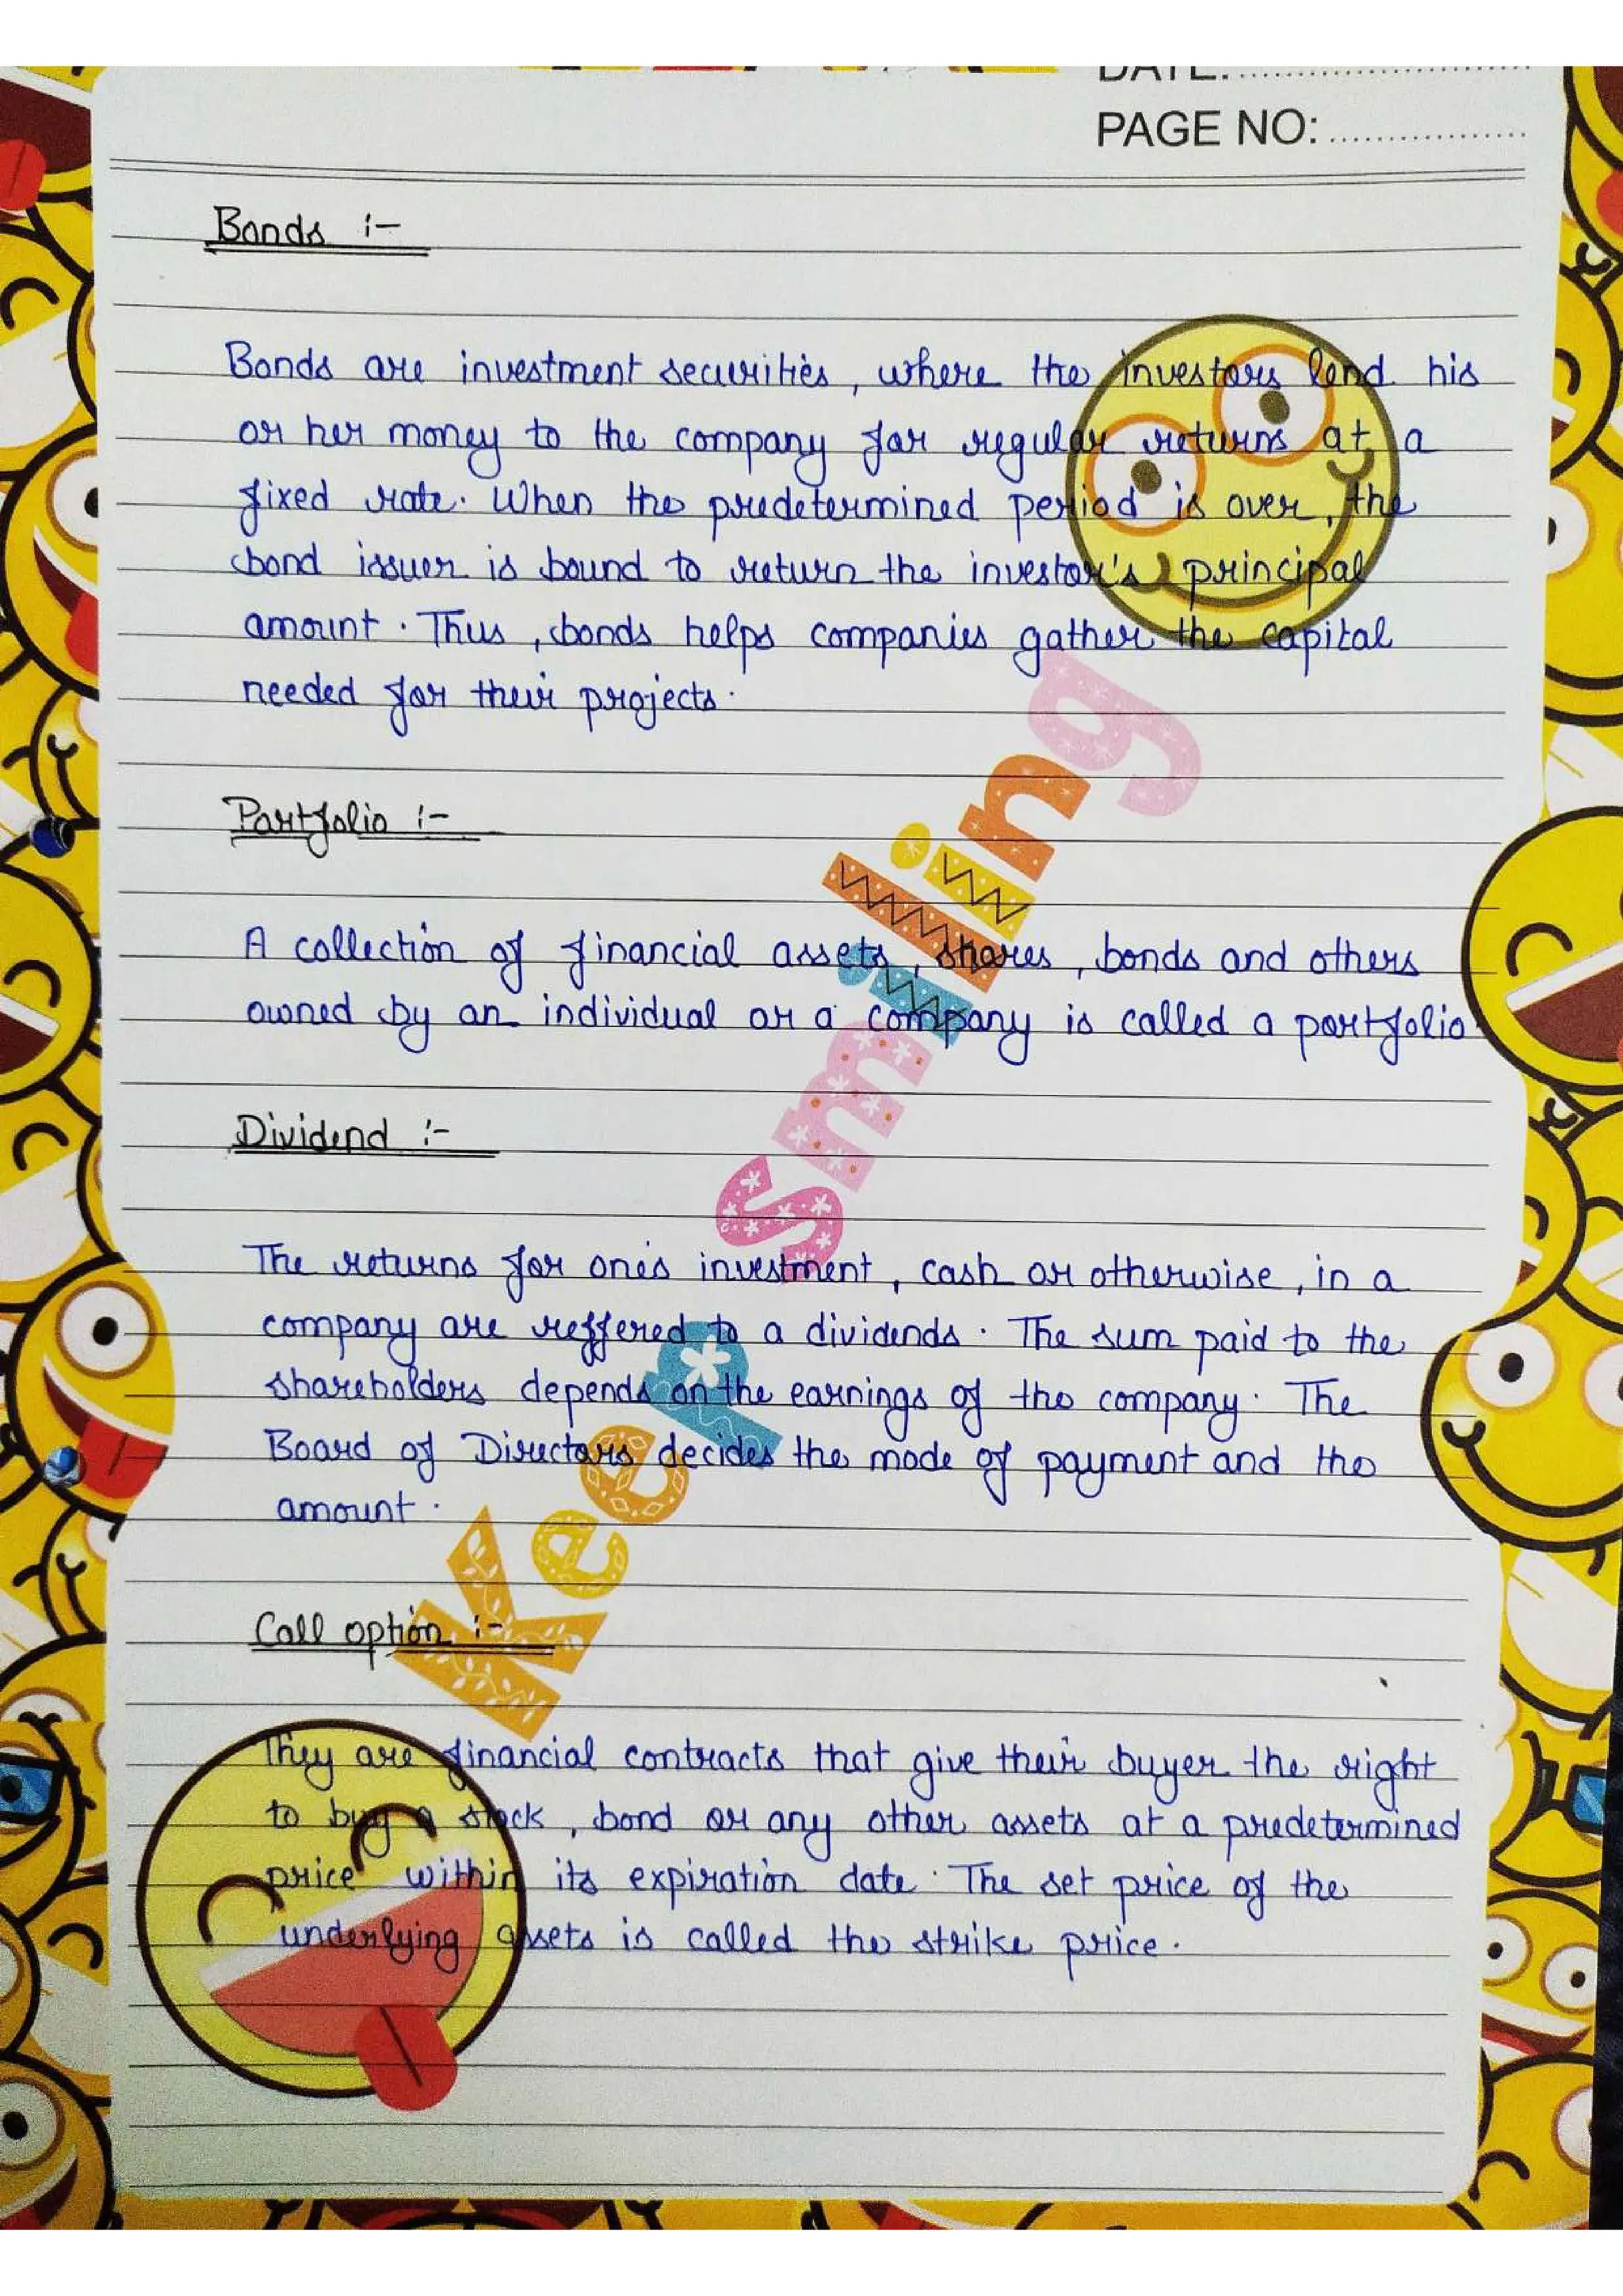 DATE:
PAGE NO:
Bonds :-
Bonds are investment securities, where the investors lend his
or her money to the company for regular returns at a
fixed rate. When the predetermined period is over, the
bond issuer is bound to return the investor's principal
amount. Thus, bonds helps companies gather the capital
needed for their projects.
Portfolio :-
A collection of financial assets, shares, bonds and others
owned by an individual or a company is called a portfolio.
Dividend :-
The returns for one's investment, cash or otherwise, in a
company are reffered to a dividends. The sum paid to the
shareholders depends on the earnings of the company. The
Board of Directors decides the mode of payment and the
amount.
Call option :-
They are financial contracts that give their buyer the right
to buy a stock, bond or any other assets at a predetermined
price within its expiration date. The set price of the
underlying assets is called the strike price.
Keep smiling